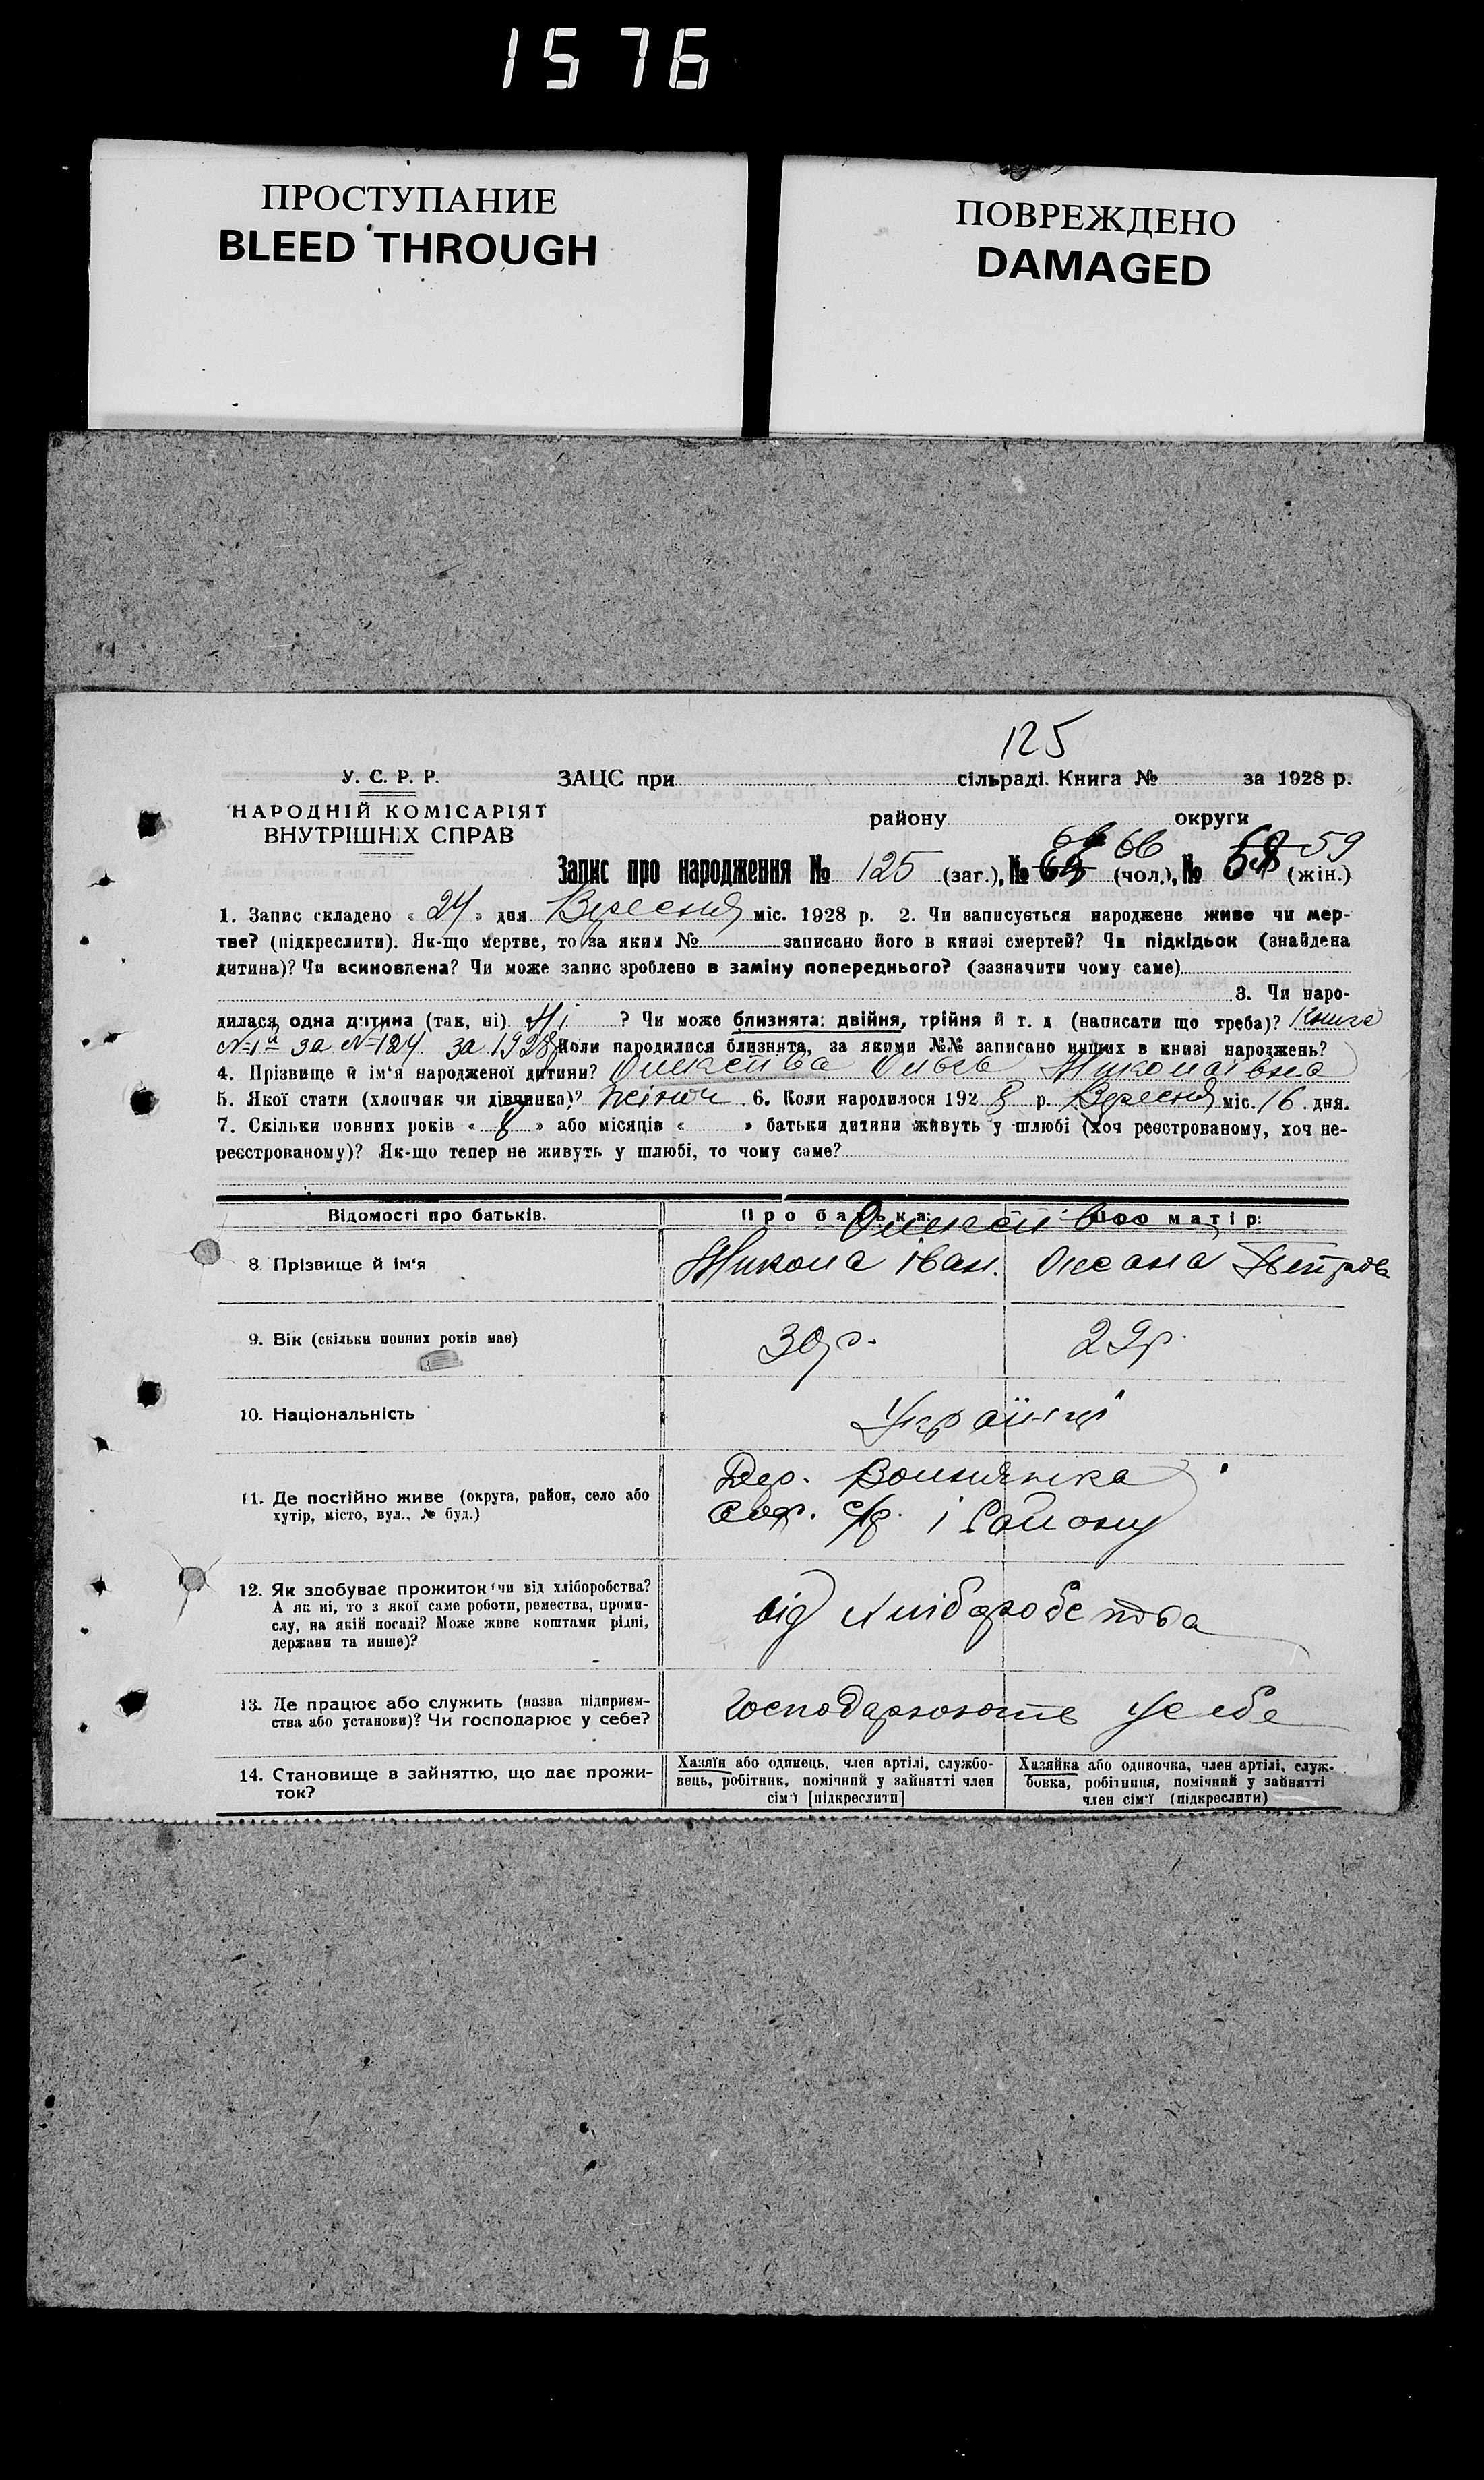 1576
ПРОСТУПАНИЕ
BLEED THROUGH
ПОВРЕЖДЕНО
DAMAGED
125
У. С. Р. Р.
НАРОДНІЙ КОМІСАРІЯТ
ВНУТРІШНІХ СПРАВ
ЗАЦС при сільраді. Книга № за 1928 р.
району округи
66 59
Запис про народження № 125 (заг.), № (чол.), № (жін.)
1. Запис складено « 24 » дня Вересня міс. 1928 р. 2. Чи записується народжене живе чи мер-
тве? (підкреслити). Як-що мертве, то за яким № записано його в книзі смертей? Чи підкідьок (знайдена
дитина)? Чи всиновлена? Чи може запис зроблено в заміну попереднього? (зазначити чому саме)
3. Чи наро-
дилася одна дитина (так, ні) Ні ? Чи може близнята: двійня, трійня й т. д (написати що треба)? Книга
№ 1й за № 124 за 1928 Коли народилися близнята, за якими №№ записано инших в книзі народжень?
4. Прізвище й ім'я народженої дитини? Ольга Миколаївна
5. Якої стати (хлопчик чи дівчинка)? жіноч. 6. Коли народилося 192 8 р. Вересня міс. 16 дня.
7. Скільки повних років « 8 » або місяців « » батьки дитини живуть у шлюбі (хоч реєстрованому, хоч не-
реєстрованому)? Як-що тепер не живуть у шлюбі, то чому саме?
Відомості про батьків. Про батька: Про матір:
8. Прізвище й ім'я Микола Іван. Оксана Петров.
9. Вік (скільки повних років має) 30р. 29р.
10. Національність Українці
11. Де постійно живе (округа, район, село або
хутір, місто, вул., № буд.)
Дер.
с/р. і Району
12. Як здобуває прожиток чи від хліборобства?
А як ні, то з якої саме роботи, ремества, проми-
слу, на якій посаді? Може живе коштами рідні,
держави та инше)?
від хліборобства
13. Де працює або служить (назва підприєм-
ства або установи)? Чи господарює у себе?
Господарюють у себе
14. Становище в зайняттю, що дає прожи-
ток?
Хазяїн або одинець, член артілі, службо-
вець, робітник, помічний у зайнятті член
сім'ї [підкреслити]
Хазяйка або одиночка, член артілі, служ-
бовка, робітниця, помічний у зайнятті
член сім'ї (підкреслити)